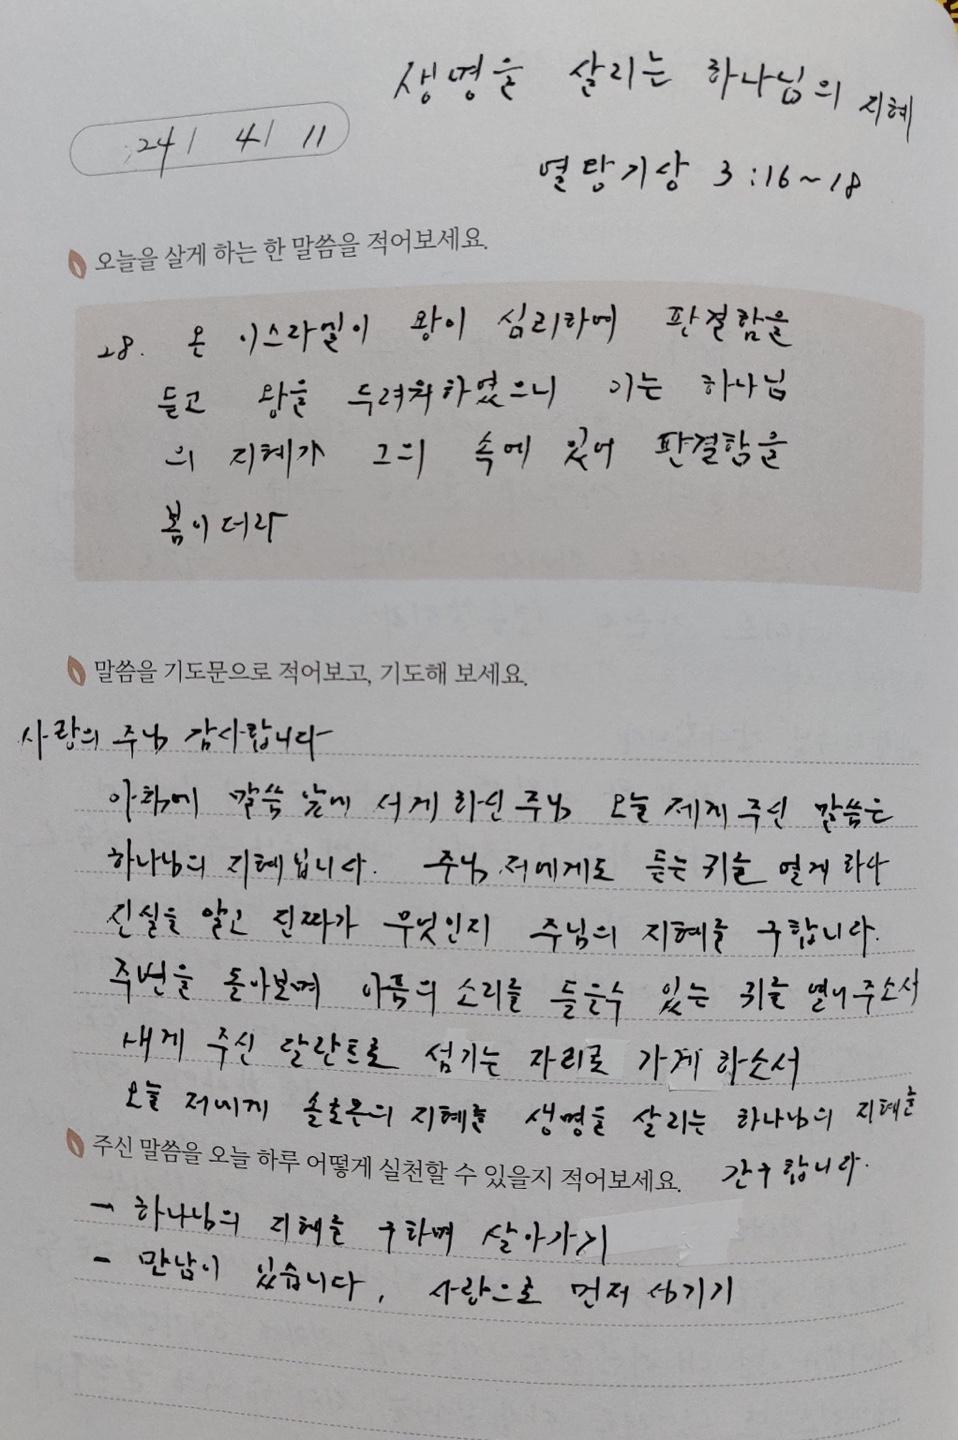 생명을 살리는 하나님의 지혜
24/ 4/ 11
열왕기상 3:16~18
오늘을 살게 하는 한 말씀을 적어보세요.
28. 온 이스라엘이 왕이 심리하여 판결함을
듣고 왕을 두려워하였으니 이는 하나님
의 지혜가 그의 속에 있어 판결함을
봄이더라
말씀을 기도문으로 적어보고, 기도해 보세요.
사랑의 주님 감사합니다
아침에 말씀 앞에 서게 하신 주님 오늘 제게 주신 말씀은
하나님의 지혜입니다. 주님 저에게도 듣는 귀를 열게 하사
진실을 알고 진짜가 무엇인지 주님의 지혜를 구합니다.
주변을 돌아보며 아픔의 소리를 들을수 있는 귀를 열어주소서
내게 주신 달란트로 섬기는 자리로 가게 하소서
오늘 저에게 솔로몬의 지혜를 생명을 살리는 하나님의 지혜를
간구합니다.
주신 말씀을 오늘 하루 어떻게 실천할 수 있을지 적어보세요.
- 하나님의 지혜를 구하며 살아가기
- 만남이 있습니다, 사랑으로 먼저 섬기기